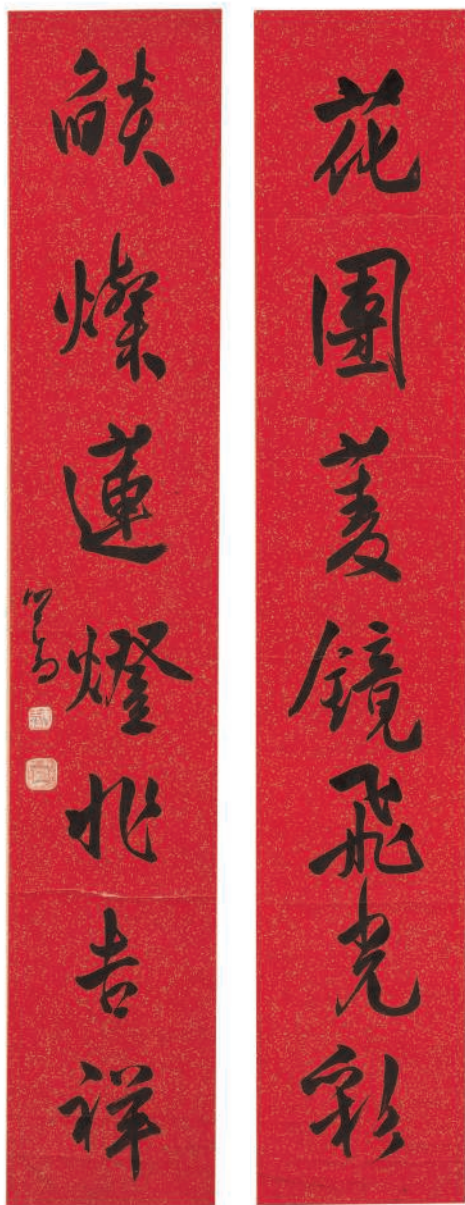 花團菱鏡飛光彩
燄燦蓮燈兆吉祥
心畬